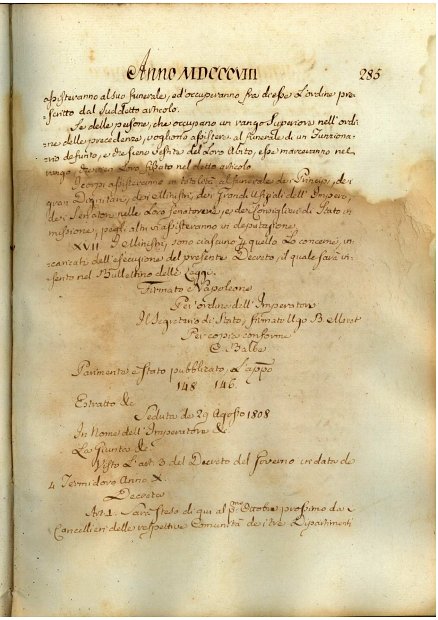 Anno MDCCCVIII 285
assisteranno al suo funerale, ed occuperanno fra di esse l'ordine pre=
scritto dal suddetto articolo.
Se delle persone, che occupano un rango superiore nell'ordi
ne delle precedenze, vogliono assistere al funerale di un Funziona
rio defunto, e che sieno vestite del loro Abito, esse marceranno nel
rango stato loro fissato nel detto articolo.
I corpi assisteranno in totalità al funerale dei Principi, dei
gran Dignitarj, dei Ministri, dei Grandi Uffiziali dell'Impero,
dei Senatori nelle loro Senatorerie, e dei Consiglieri di Stato in
missione, per gli altri vi assisteranno in deputazione.
XVII I Ministri, sono ciascuno in quello lo concerne, in=
caricati dell'esecuzione del presente Decreto, il quale sarà in=
serito nel Bullettino delle Leggi.
Firmato = Napoleone
Per l'ordine dell'Imperatore
Il Segretario di Stato, firmato Ugo B. Maret
Per copia conforme
C. Balbe
Parimente è stato pubblicato, e l'appo
148 146
Estratto &c
Seduta de 29 Agosto 1808
In Nome dell'Imperatore &c
La Giunta &c
Visto l'art. 3 del Decreto del Governo in data de
4 Termidoro Anno X.
Decreta
Art. 1. Sarà steso di qui al pmo Ottobre prossimo da
Cancellieri delle rispettive Comunità de i tre Dipartimenti